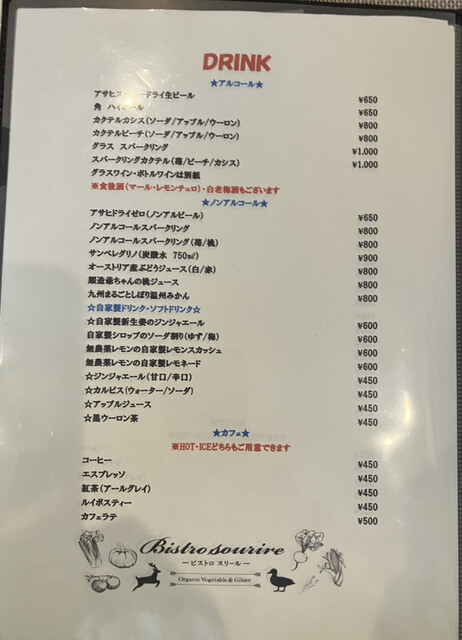 DRINK
★アルコール★
アサヒスーパードライ生ビール ¥650
角 ハイボール ¥650
カクテルカシス(ソーダ/アップル/ウーロン) ¥800
カクテルピーチ(ソーダ/アップル/ウーロン) ¥800
グラス スパークリング ¥1,000
スパークリングカクテル(苺/ピーチ/カシス) ¥1,000
グラスワイン・ボトルワインは別紙
※食後酒(マール・レモンチェロ)・白老梅酒もございます
★ノンアルコール★
アサヒドライゼロ(ノンアルビール) ¥650
ノンアルコールスパークリング ¥800
ノンアルコールスパークリング(苺/桃) ¥800
サンペレグリノ(炭酸水 750㎖) ¥900
オーストリア産ぶどうジュース(白/赤) ¥800
順造爺ちゃんの桃ジュース ¥800
九州まるごとしぼり温州みかん ¥800
☆自家製ドリンク・ソフトドリンク☆
☆自家製新生姜のジンジャエール ¥600
自家製シロップのソーダ割り(ゆず/梅) ¥600
無農薬レモンの自家製レモンスカッシュ ¥600
無農薬レモンの自家製レモネード ¥600
☆ジンジャエール(甘口/辛口) ¥450
☆カルピス(ウォーター/ソーダ) ¥450
☆アップルジュース ¥450
☆黒ウーロン茶 ¥450
★カフェ★
※HOT・ICEどちらもご用意できます
コーヒー ¥450
エスプレッソ ¥450
紅茶(アールグレイ) ¥450
ルイボスティー ¥450
カフェラテ ¥500
Bistro sourire
ービストロ スリールー
Organic Vegetable & Gibier